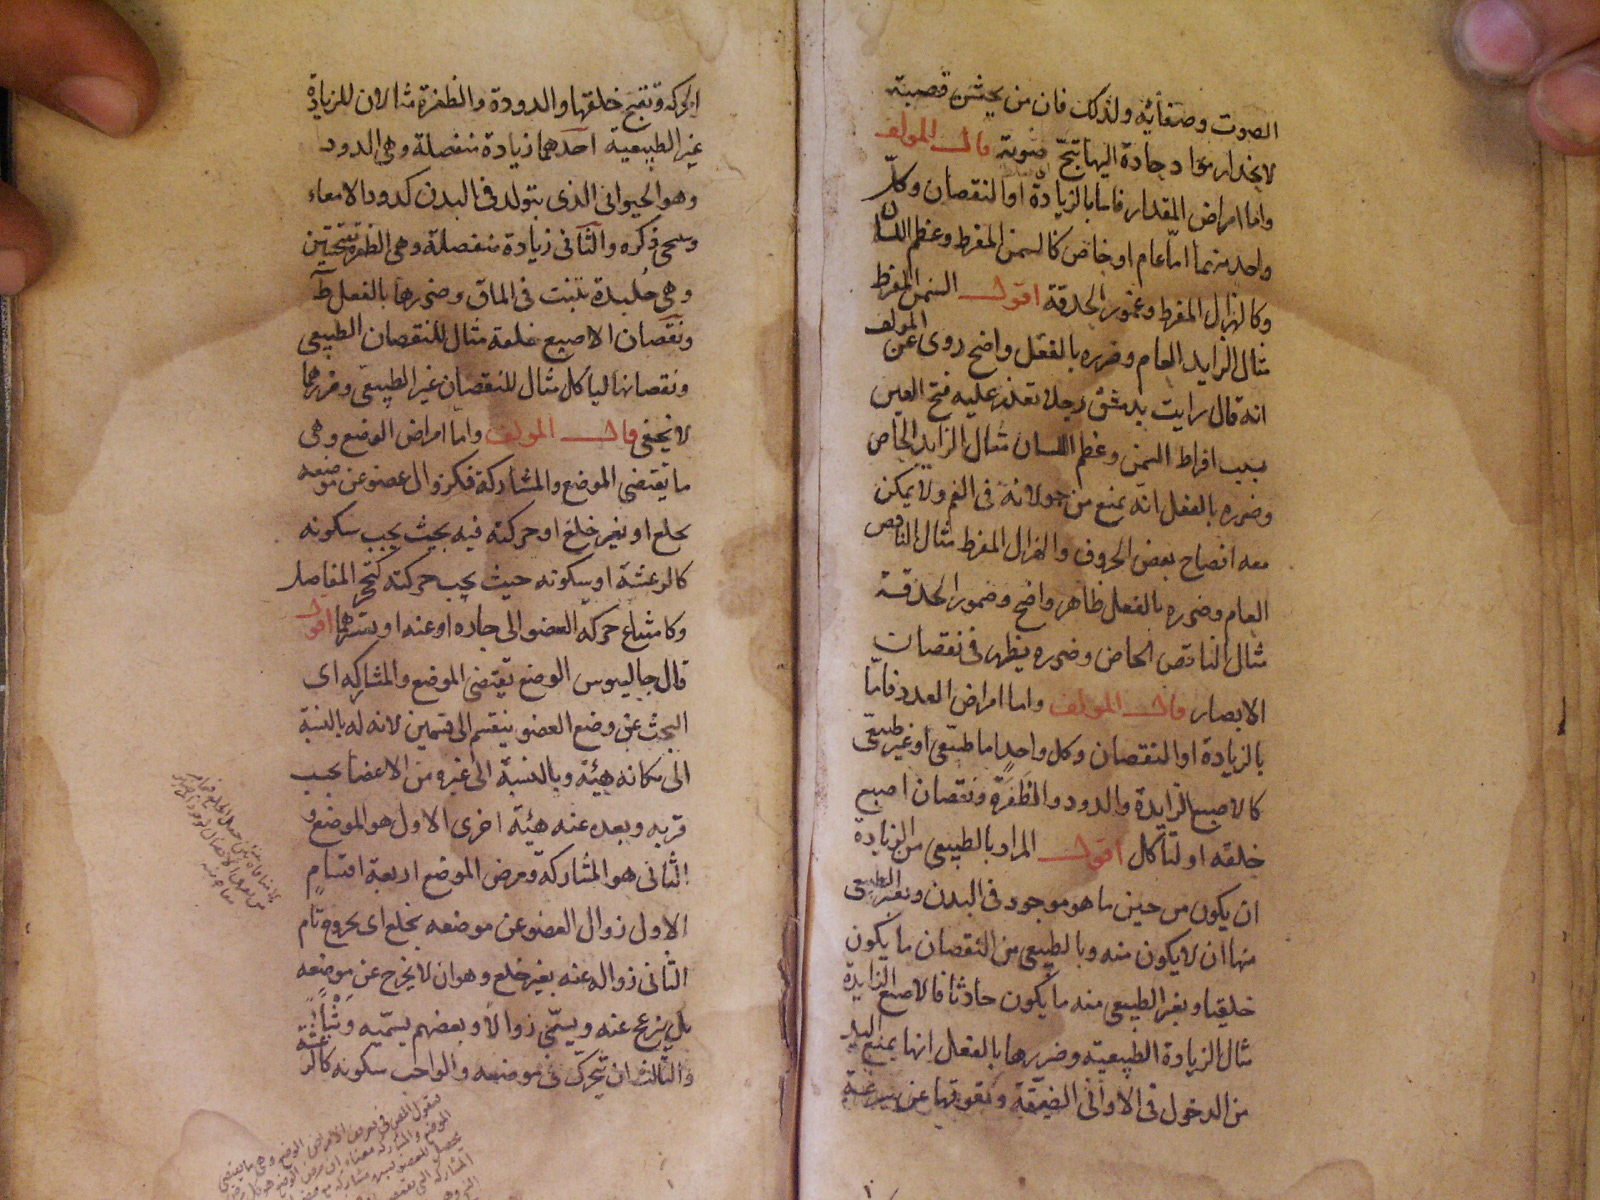 الصوت وصفائه ولذلك فان من يخشن قصبة
لانحدار مواد حادة اليها تبح صوته قال المولف
واما امراض المقدار فاما بالزيادة او النقصان وكل
واحد منهما اما عام او خاص كالسمن المفرط وعظم اللسان
وكالهزال المفرط وضمور الحدقة اقول السمن المفرط
مثال الزايد العام وضرره بالفعل واضح روى عن المولف
انه قال رايت بدمشق رجلا تعذر عليه فتح العين
بسبب افراط السمن وعظم اللسان مثال الزايد الخاص
وضرره بالفعل انه يمنع من جولانه في الفم ولا يمكن
معه افصاح بعض الحروف والهزال المفرط مثال الناقص
العام وضرره بالفعل ظاهر واضح وضمور الحدقة
مثال الناقص الخاص وضرره يظهر في نقصان
الابصار قال المولف واما امراض العدد فاما
بالزيادة او النقصان وكل واحد اما طبيعى او غير طبيعى
كالاصبع الزايدة والدود والظفرة ونقصان اصبع
خلقه او لتأكل اقول المراد بالطبيعى من الزيادة
ان يكون من جنس ما هو موجود في البدن وبغير الطبيعى
منها ان لا يكون منه وبالطبيعى من النقصان ما يكون
خلقيا وبغير الطبيعى منه ما يكون حادثا فالاصبع الزايدة
مثال الزيادة الطبيعية وضررها بالفعل انها يمنع اليد
من الدخول في الاواني الضيقة وتعوقها عن سرعة
الحركة وتقبح خلقتها والدودة والظفرة مثالان للزيادة
غير الطبيعية احدهما زيادة منفصلة وهى الدود
وهو الحيوانى الذى يتولد في البدن كدود الامعاء
وسيجى ذكره والثانى زيادة متصلة وهى الظفرة بفتحتين
وهى جليدة تنبت في الماق وضررها بالفعل ظ
ونقصان الاصبع خلقة مثال للنقصان الطبيعى
ونقصانها لتأكل مثال للنقصان غير الطبيعى وضررهما
لا يخفى قال المولف واما امراض الوضع وهى
ما تقتضى الموضع والمشاركة فكزوال عضو عن موضعه
بخلع او بغير خلع او حركته فيه بحيث يجب سكونه
كالرعشة او سكونه حيث يجب حركته كتحجر المفاصل
وكامتناع حركة العضو الى جاره او عنه او بعسرهما اقول
قال جالينوس الوضع يقتضى الموضع والمشاركه اى
البحث عن وضع العضو ينقسم الى قسمين لانه له بالنسبة
الى مكانه هيئة وبالنسبة الى غيره من الاعضا بحسب
قربه وبعده عنه هيئة اخرى الاول هو الموضع و
الثانى هو المشاركة ومرض الموضع اربعة اقسام
الاول زوال العضو عن موضعه بخلع اى بخروج تام
الثانى زواله عنه بغير خلع وهو ان لا يخرج عن موضعه
بل ينزعج عنه ويسمى زوالا وبعضهم يسميه وثيا
والثالث ان يتحرك في موضعه والواجب سكونه كالرعشة